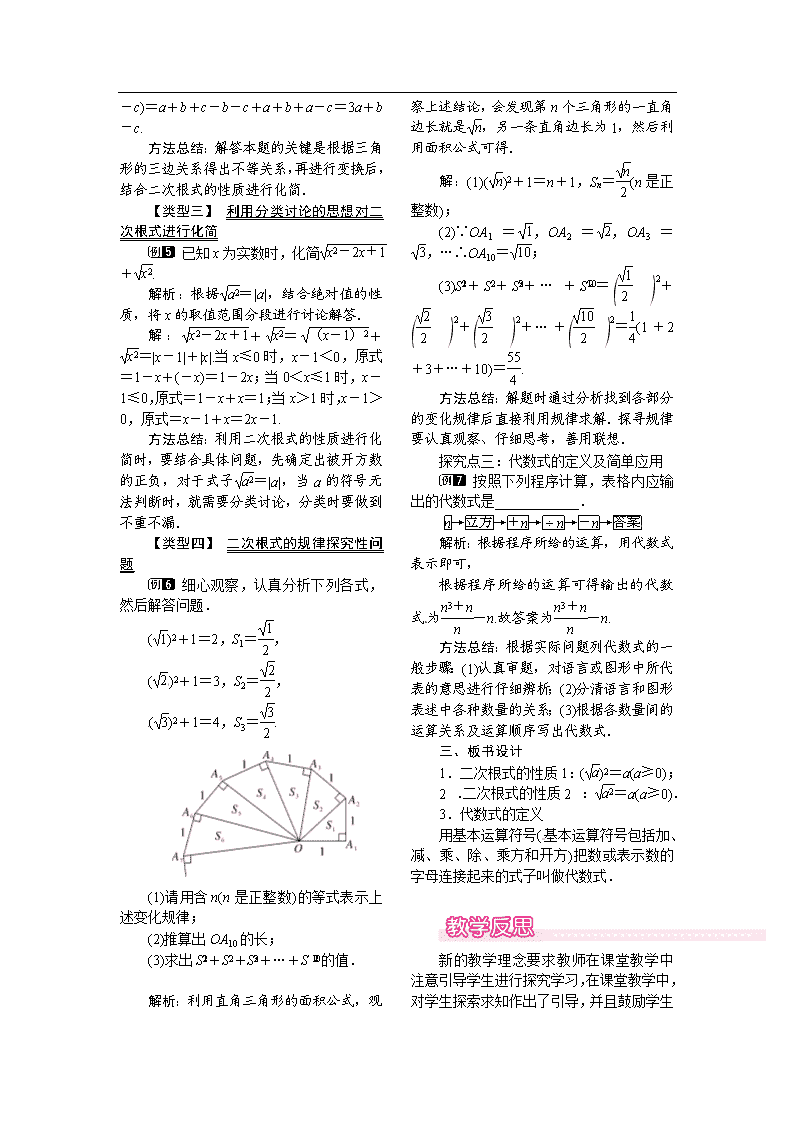 －c)＝a＋b＋c－b－c＋a＋b＋a－c＝3a＋b
－c.
方法总结：解答本题的关键是根据三角
形的三边关系得出不等关系，再进行变换后，
结合二次根式的性质进行化简．
【类型三】 利用分类讨论的思想对二
次根式进行化简
例5 已知x为实数时，化简√(x²－2x＋1)
＋√x².
解析：根据√a²＝|a|，结合绝对值的性
质，将x的取值范围分段进行讨论解答．
解：√(x²－2x＋1)＋√x²＝√(（x－1）²)＋
√x²＝|x－1|＋|x|.当x≤0时，x－1＜0，原式
＝1－x＋(－x)＝1－2x；当0＜x≤1时，x－
1≤0，原式＝1－x＋x＝1；当x＞1时，x－1＞
0，原式＝x－1＋x＝2x－1.
方法总结：利用二次根式的性质进行化
简时，要结合具体问题，先确定出被开方数
的正负，对于式子√a²＝|a|，当a的符号无
法判断时，就需要分类讨论，分类时要做到
不重不漏．
【类型四】 二次根式的规律探究性问
题
例6 细心观察，认真分析下列各式，
然后解答问题．
(√1)²＋1＝2，S₁＝√1/2，
(√2)²＋1＝3，S₂＝√2/2，
(√3)²＋1＝4，S₃＝√3/2.
(1)请用含n(n是正整数)的等式表示上
述变化规律；
(2)推算出OA₁₀的长；
(3)求出S₁²＋S₂²＋S₃²＋…＋S₁₀²的值．
解析：利用直角三角形的面积公式，观
察上述结论，会发现第n个三角形的一直角
边长就是√n，另一条直角边长为1，然后利
用面积公式可得．
解：(1)(√n)²＋1＝n＋1，Sₙ＝√n/2(n是正
整数)；
(2)∵OA₁＝√1，OA₂＝√2，OA₃＝
√3，…∴OA₁₀＝√10；
(3)S₁²＋S₂²＋S₃²＋…＋S₁₀²＝(√1/2)²＋
(√2/2)²＋(√3/2)²＋…＋(√10/2)²＝1/4(1＋2
＋3＋…＋10)＝55/4.
方法总结：解题时通过分析找到各部分
的变化规律后直接利用规律求解．探寻规律
要认真观察、仔细思考，善用联想．
探究点三：代数式的定义及简单应用
例7 按照下列程序计算，表格内应输
出的代数式是____________．
n→立方→＋n→÷n→－n→答案
解析：根据程序所给的运算，用代数式
表示即可，
根据程序所给的运算可得输出的代数
式为(n³＋n)/n－n.故答案为(n³＋n)/n－n.
方法总结：根据实际问题列代数式的一
般步骤：(1)认真审题，对语言或图形中所代
表的意思进行仔细辨析；(2)分清语言和图形
表述中各种数量的关系；(3)根据各数量间的
运算关系及运算顺序写出代数式．
三、板书设计
1．二次根式的性质1：(√a)²＝a(a≥0)；
2．二次根式的性质2：√a²＝a(a≥0)．
3．代数式的定义
用基本运算符号(基本运算符号包括加、
减、乘、除、乘方和开方)把数或表示数的
字母连接起来的式子叫做代数式．
教学反思
新的教学理念要求教师在课堂教学中
注意引导学生进行探究学习，在课堂教学中，
对学生探索求知作出了引导，并且鼓励学生